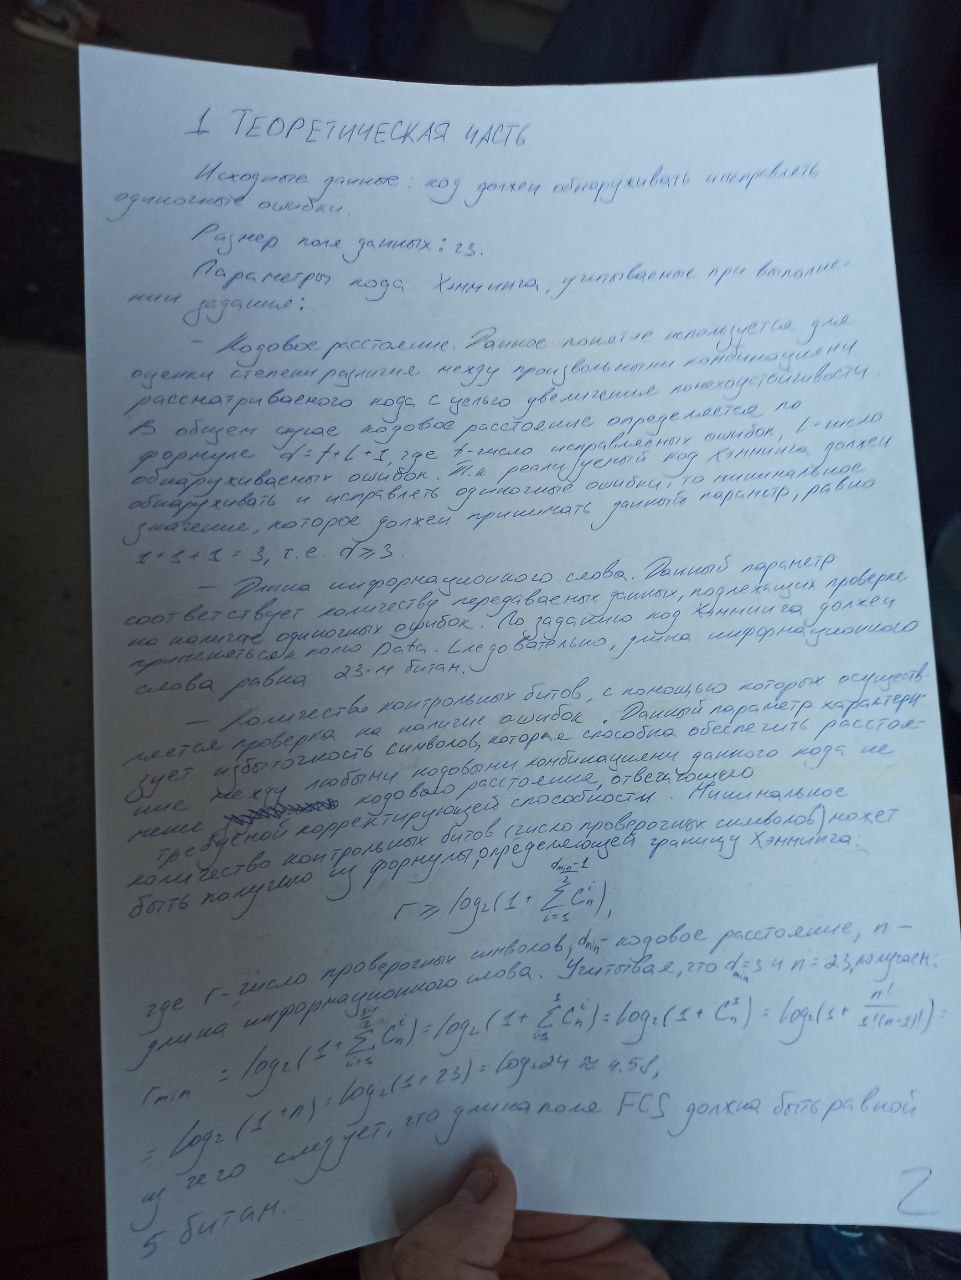 1 ТЕОРЕТИЧЕСКАЯ ЧАСТЬ
Исходные данные: код должен обнаруживать и исправлять
одиночные ошибки.
Размер поля данных: 23.
Параметры кода Хэмминга, учитываемые при выполне-
нии задания:
– Кодовое расстояние. Данное понятие используется для
оценки степени различия между произвольными комбинациями
рассматриваемого кода с целью увеличения помехоустойчивости.
В общем случае кодовое расстояние определяется по
формуле d=t+L+1, где t-число исправляемых ошибок, L-число
обнаруживаемых ошибок. Т.к. реализуемый код Хэмминга должен
обнаруживать и исправлять одиночные ошибки, то минимальное
значение, которое должен принимать данный параметр, равно
1+1+1=3, т.е. d⩾3.
– Длина информационного слова. Данный параметр
соответствует количеству передаваемых данных, подлежащих проверке
на наличие одиночных ошибок. По заданию код Хэмминга должен
применяться к полю Data. Следовательно, длина информационного
слова равна 23-м битам.
– Количество контрольных битов, с помощью которых осуществ-
ляется проверка на наличие ошибок. Данный параметр характери-
зует избыточность символов, которая способна обеспечить расстоя-
ние между любыми кодовыми комбинациями данного кода не
менее кодового расстояния, отвечающего
требуемой корректирующей способности. Минимальное
количество контрольных битов (число проверочных символов) может
быть получено из формулы, определяющей границу Хэмминга:
r ⩾ log₂(1+ ∑_{i=1}^{(d_min-1)/2} C_n^i),
где r-число проверочных символов, d_min-кодовое расстояние, n –
длина информационного слова. Учитывая, что d_min=3 и n=23, получаем:
r_min = log₂(1+ ∑_{i=1}^{(3-1)/2} C_n^i) = log₂(1+ ∑_{i=1}^{1} C_n^i) = log₂(1+ C_n^1) = log₂(1+ n!/(1!(n-1)!)) =
= log₂(1+n) = log₂(1+23) = log₂24 ≈ 4.58,
из чего следует, что длина поля FCS должна быть равной
5 битам.
2